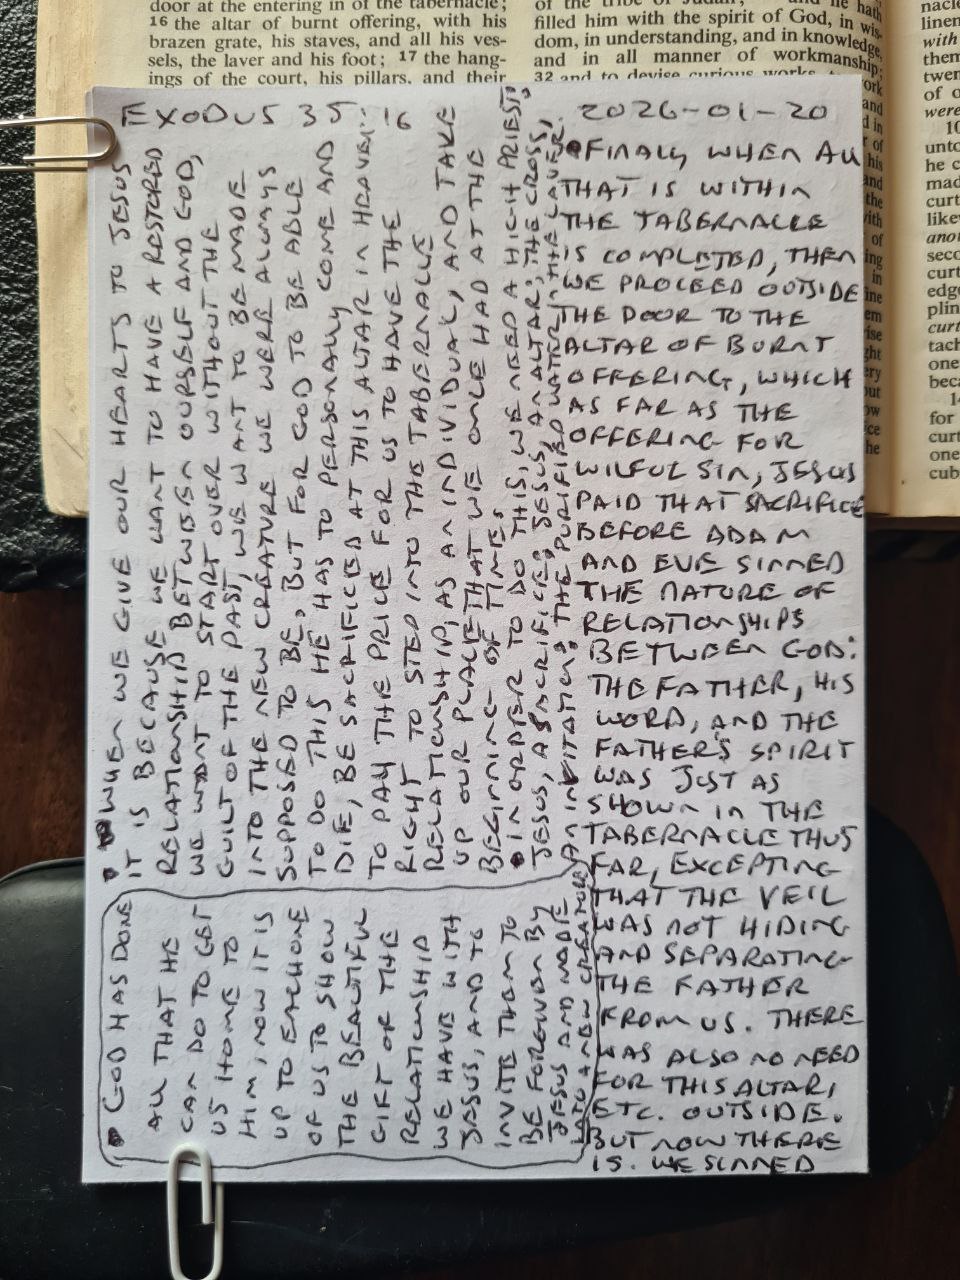 door at the entering in of the tabernacle;
16 the altar of burnt offering, with his
brazen grate, his staves, and all his ves-
sels, the laver and his foot; 17 the hang-
ings of the court, his pillars, and their
filled him with the spirit of God, in wis-
dom, in understanding, and in knowledge,
and in all manner of workmanship;
32 and to devise curious works,
EXODUS 35:16
2026-01-20
• FINALLY WHEN ALL
THAT IS WITHIN
THE TABERNACLE
IS COMPLETED, THEN
WE PROCEED OUTSIDE
THE DOOR TO THE
ALTAR OF BURNT
OFFERING, WHICH
AS FAR AS THE
OFFERING FOR
WILFUL SIN, JESUS
PAID THAT SACRIFICE
BEFORE ADAM
AND EVE SINNED
THE NATURE OF
RELATIONSHIPS
BETWEEN GOD:
THE FATHER, HIS
WORD, AND THE
FATHER'S SPIRIT
WAS JUST AS
SHOWN IN THE
TABERNACLE THUS
FAR, EXCEPTING
THAT THE VEIL
WAS NOT HIDING
AND SEPARATING
THE FATHER
FROM US. THERE
WAS ALSO NO NEED
FOR THIS ALTAR,
ETC. OUTSIDE.
BUT NOW THERE
IS. WE SINNED
• WHEN WE GIVE OUR HEARTS TO JESUS
IT IS BECAUSE WE WANT TO HAVE A RESTORED
RELATIONSHIP BETWEEN OURSELF AND GOD,
WE WANT TO START OVER WITHOUT THE
GUILT OF THE PAST, WE WANT TO BE MADE
INTO THE NEW CREATURE WE WERE ALWAYS
SUPPOSED TO BE, BUT FOR GOD TO BE ABLE
TO DO THIS HE HAS TO PERSONALLY COME AND
DIE, BE SACRIFICED AT THIS ALTAR IN HEAVEN:
TO PAY THE PRICE FOR US TO HAVE THE
RIGHT TO STEP INTO THE TABERNACLE
RELATIONSHIP, AS AN INDIVIDUAL, AND TAKE
UP OUR PLACE THAT WE ONCE HAD AT THE
BEGINING OF TIME.
• IN ORDER TO DO THIS, WE NEED A HIGH PRIEST:
JESUS, A SACRIFICE: JESUS, AN ALTAR: THE CROSS,
AN INVITATION: THE PURIFIED WATER IN THE LAVER.
• GOD HAS DONE
ALL THAT HE
CAN DO TO GET
US HOME TO
HIM, NOW IT IS
UP TO EACH ONE
OF US TO SHOW
THE BEAUTIFUL
GIFT OF THE
RELATIONSHIP
WE HAVE WITH
JESUS, AND TO
INVITE THEM TO
BE FORGIVEN BY
JESUS AND MADE
INTO A NEW CREATURE